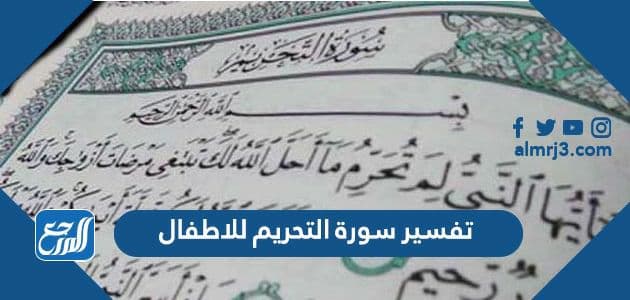 سُورَةُ التَّحْرِيمِ
بِسْمِ اللَّهِ الرَّحْمَٰنِ الرَّحِيمِ
يَا أَيُّهَا النَّبِيُّ لِمَ تُحَرِّمُ مَا أَحَلَّ اللَّهُ لَكَ تَبْتَغِي مَرْضَاتَ أَزْوَاجِكَ وَاللَّهُ
رَّحِيمٌ
almrj3.com
تفسير سورة التحريم للاطفال
المرجع